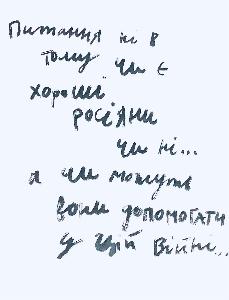 Питання не в
тому чи є
хороші
росіяни
чи ні...
а чи можуть
вони допомагати
у цій війні...